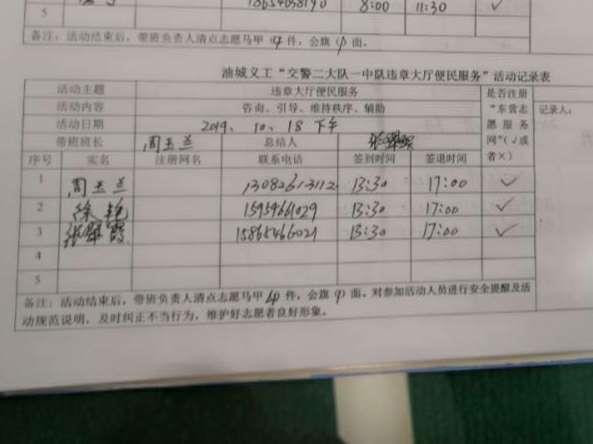 5 8:00 11:30 ✓
备注：活动结束后，带班负责人清点志愿马甲 4 件，会旗 / 面。
油城义工“交警二大队一中队违章大厅便民服务”活动记录表
活动主题 违章大厅便民服务 是否注册“东营志愿服务网”（√或者×） 记录人：
活动内容 咨询、引导、维持秩序、辅助
活动日期 2019、10、18 下午
带班班长 周玉兰 总结人 张翠霞
序号 实名 注册网名 联系电话 签到时间 签退时间
1 周玉兰 13082613112 13:30 17:00 ✓
2 徐艳 13:30 17:00 ✓
3 张翠霞 15865466021 13:30 17:00 ✓
4
5
备注：活动结束后，带班负责人清点志愿马甲 4 件，会旗 / 面。对参加活动人员进行安全提醒及活
动规范说明，及时纠正不当行为，维护好志愿者良好形象。